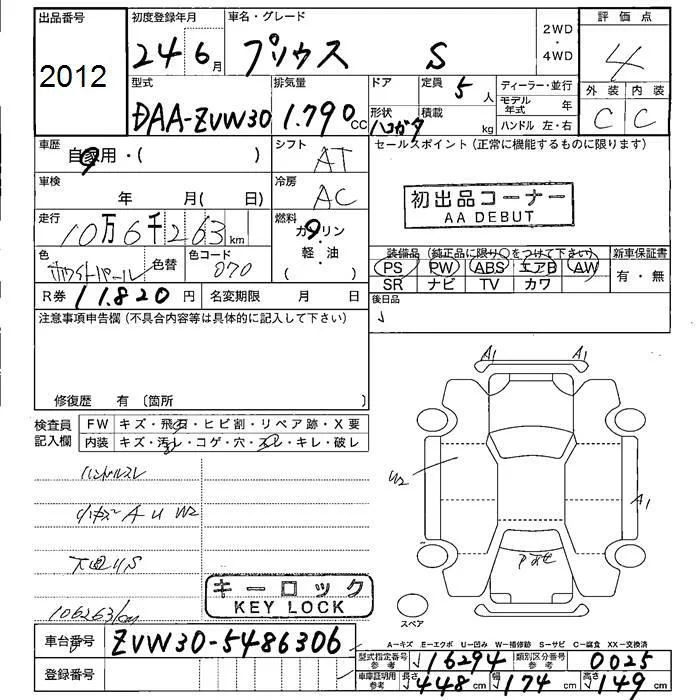 出品番号 初度登録年月 車名・グレード 2WD・4WD 評価点
2012 24 6月 プリウス S 4
型式 排気量 ドア 定員 5人 ディーラー・並行 外装 内装
DAA-ZVW30 1.790cc 形状 ハコガタ 積載 kg モデル年式 年 C C
ハンドル 左・右
車歴 自家用・( ) シフト AT セールスポイント(正常に機能するものに限ります)
車検 年 月( 日) 冷房 AC 初出品コーナー
AA DEBUT
走行 10万6千263km 燃料 ガソリン・軽・油
色 ホワイトパール 色替 色コード 070 装備品(純正品に限り○をつけて下さい) 新車保証書
PS PW ABS エアB AW 有・無
SR ナビ TV カワ
R券 11.820円 名変期限 月 日 後日品
注意事項申告欄(不具合内容等は具体的に記入して下さい)
A1 A1
修復歴 有(箇所
検査員記入欄 FW キズ・飛石・ヒビ割・リペア跡・X要
内装 キズ・汚レ・コゲ・穴・スレ・キレ・破レ
ハンドルスレ
W2
A1
小キズ AU W2
下回りS
キーロック
KEY LOCK
106263km
スペア
車台番号 ZVW30-5486306
A-キズ E-エクボ U-凹み W-補修跡 S-サビ C-腐食 XX-交換済
型式指定番号参考 16294 類別区分番号参考 0025
登録番号 車庫証明用参考 長さ 448cm 幅 174cm 高さ 149cm